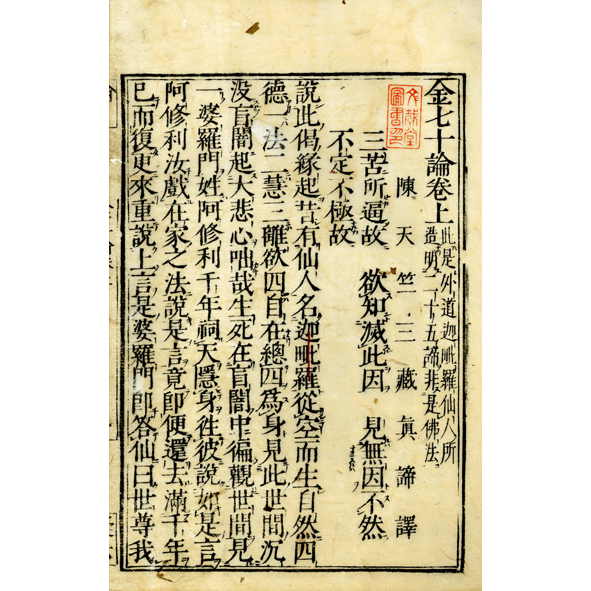 金七十論卷上
此是外道迦毗羅仙人所
造明二十五諦非是佛法
陳天竺三藏眞諦譯
三苦所逼故 欲知滅此因 見無因不然
不定不極故
說此偈緣起昔有仙人名迦毗羅從空而生自然四
德一法二慧三離欲四自在總四為身見此世間沉
没盲闇起大悲心咄哉生死在盲闇中徧觀世間見
一婆羅門姓阿修利千年祠天隱身徃彼說如是言
阿修利汝戲在家之法說是言竟即便還去滿千年
已而復更來重說上言是婆羅門即答仙曰世尊我